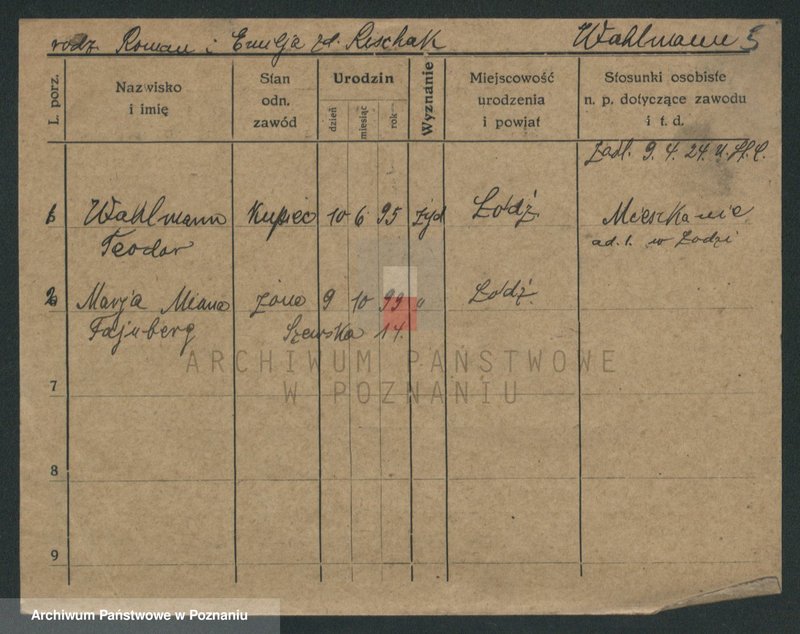 rodz. Roman i Emilja zd. Reschak Wahlmann 5
L. porz.
Nazwisko
i imię
Stan
odn.
zawód
Urodzin
dzień
miesiąc
rok
Wyznanie
Miejscowość
urodzenia
i powiat
Stosunki osobiste
n. p. dotyczące zawodu
i t. d.
Zadl. 9. 4. 24.
1 Wahlmann Kupiec 10 6 95 żyd Łódź Mieszkanie
Teodor ad. 1. w Łodzi
2 Marja Miana żona 9 10 99 " Łódź
Fajnberg Szewska 14.
ARCHIWUM PAŃSTWOWE
W POZNANIU
7
8
9
Archiwum Państwowe w Poznaniu